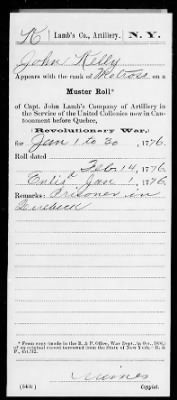 K | Lamb's Co., Artillery. | N. Y.
John Kelly
Appears with the rank of Matross on a
Muster Roll*
of Capt. John Lamb's Company of Artillery in
the Service of the United Collonies now in Can-
toonment before Quebec,
(Revolutionary War,)
for Jan 1 to 30, 1776.
Roll dated
Feb. 14, 1776.
Enlis'd Jan 1, 1776.
Remarks: Prisoner in
Quebeck
* From copy (made in the R. & P. Office, War Dep.,
an original record borrowed from the State of New York.—R. &
P., 436,912.
Copyist.